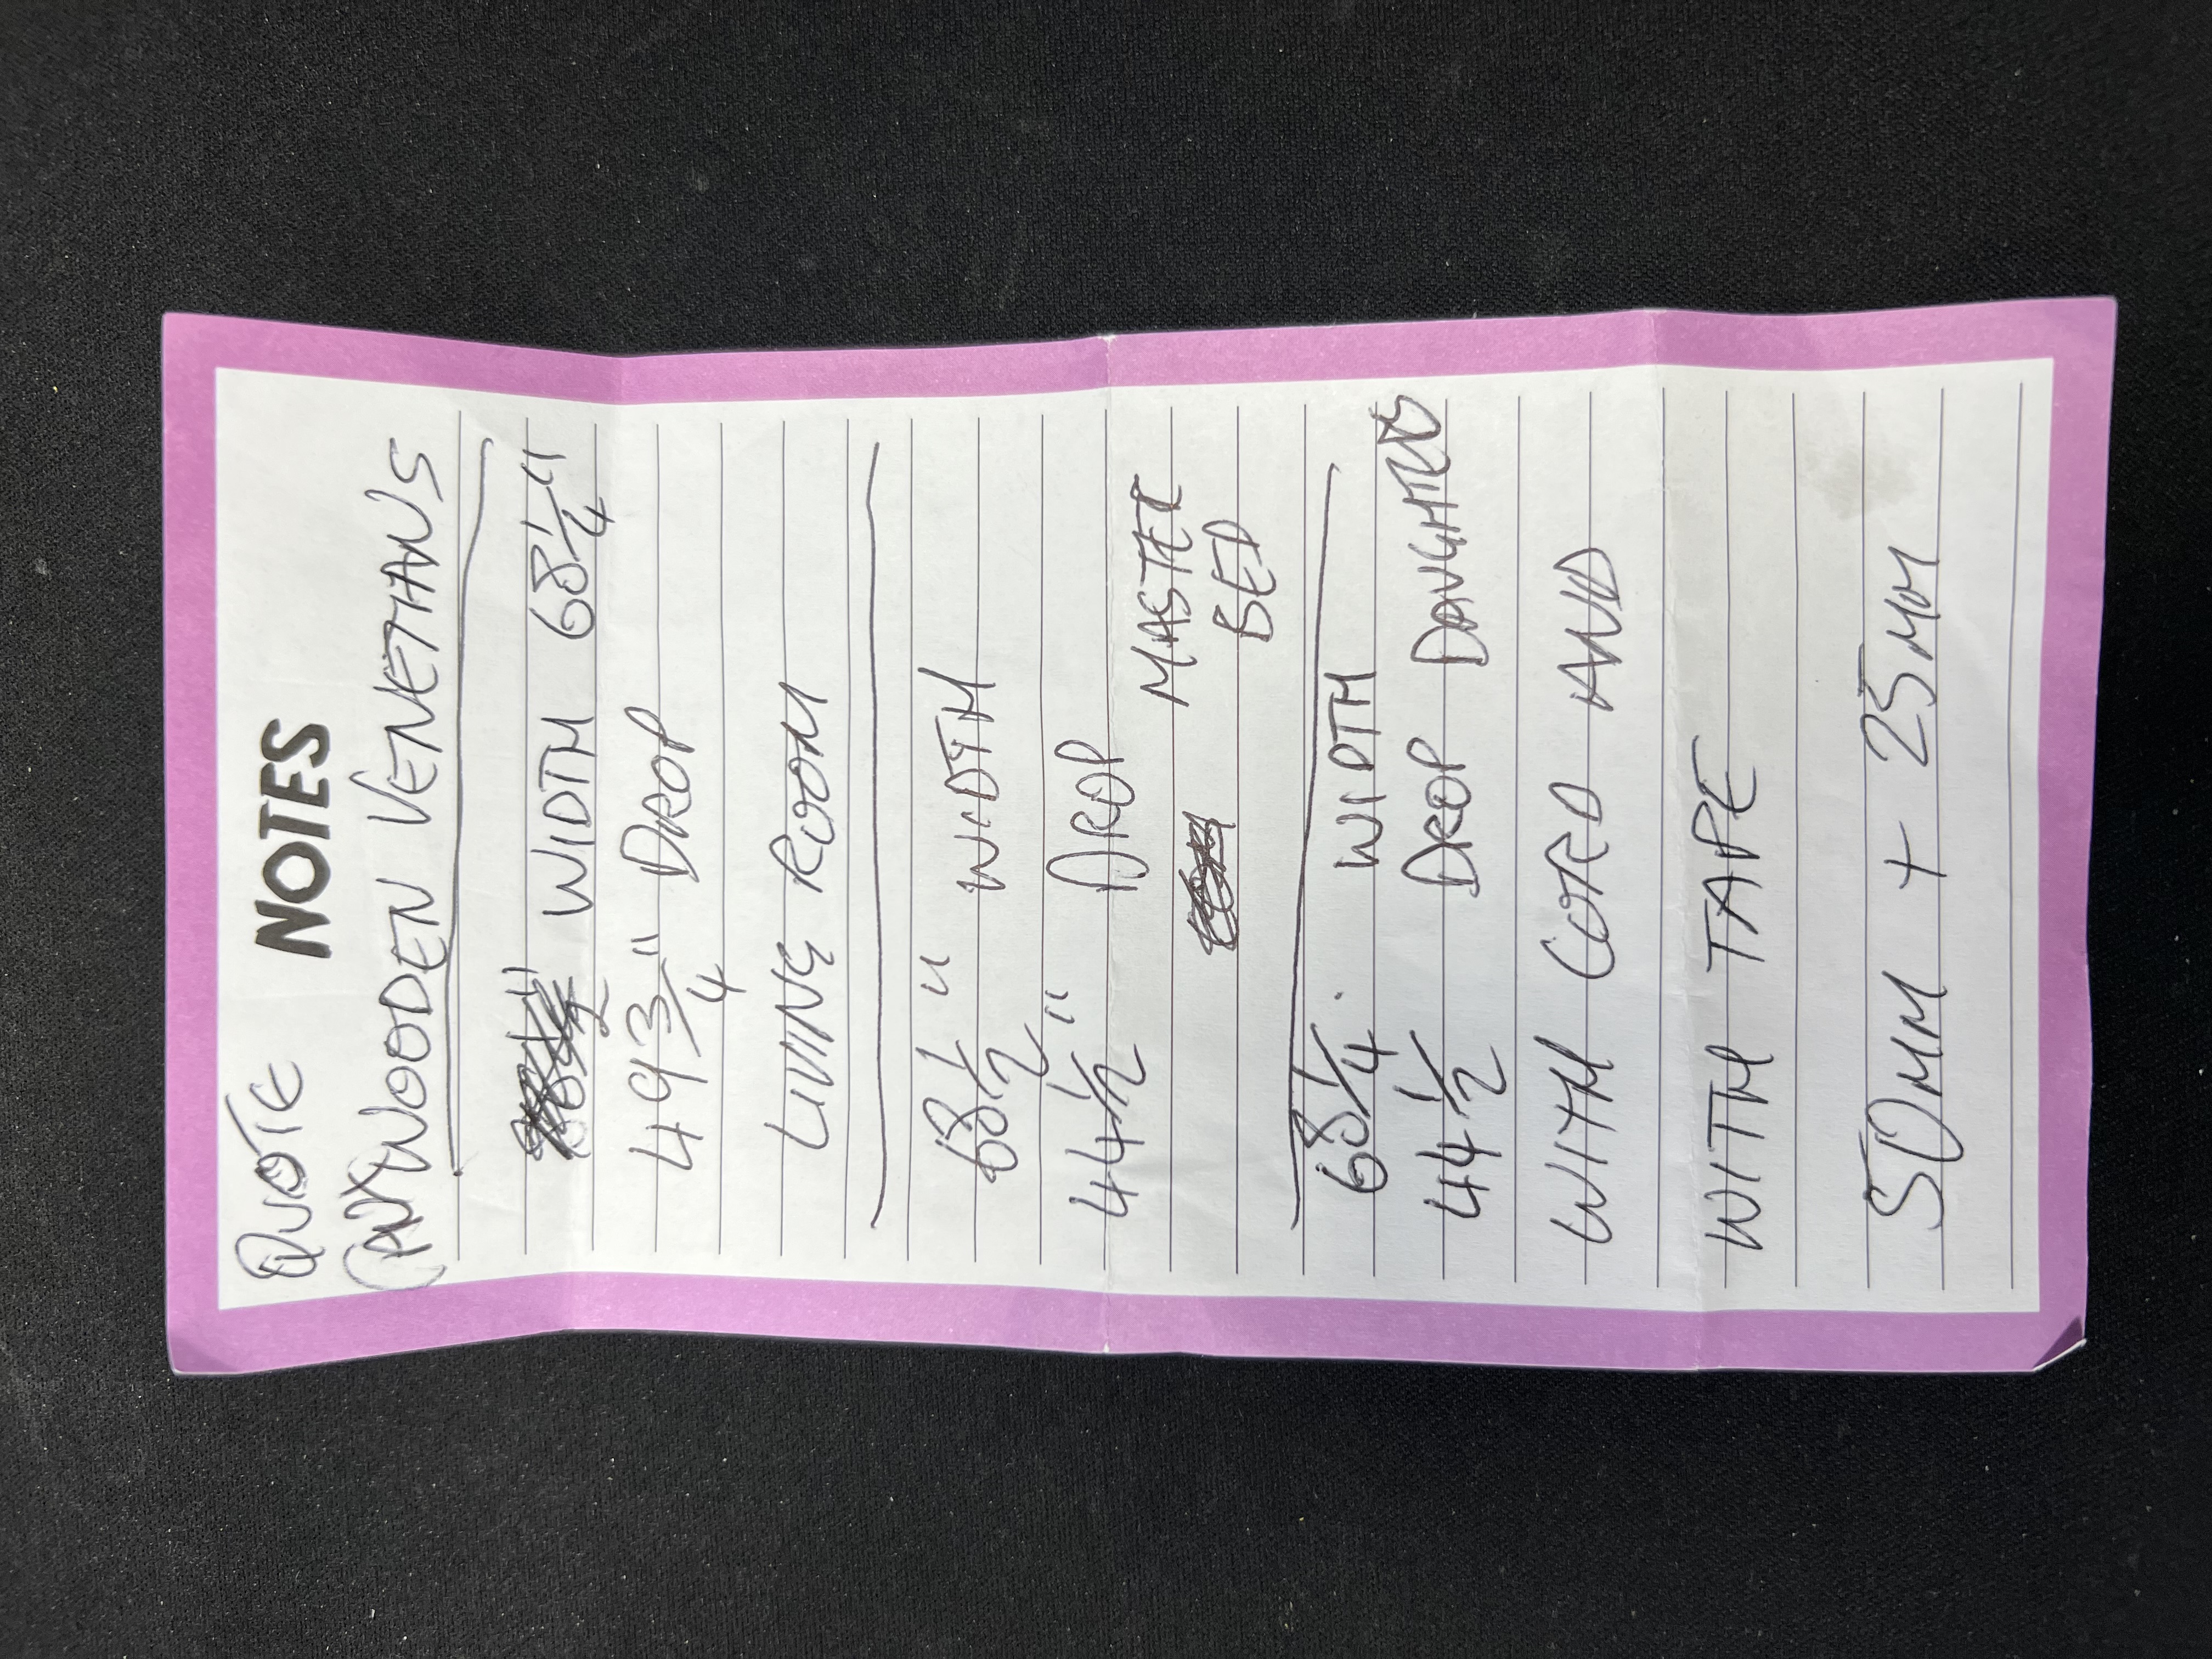 QUOTE
NOTES
WOODEN VENETIANS
WIDTH 68 1/4"
49 3/4" DROP
LIVING ROOM
68 1/2" WIDTH
44 1/2" DROP
MASTER
BED
68 1/4 WIDTH
44 1/2 DROP DAUGHTERS
WITH CORD AND
WITH TAPE
50MM + 25MM